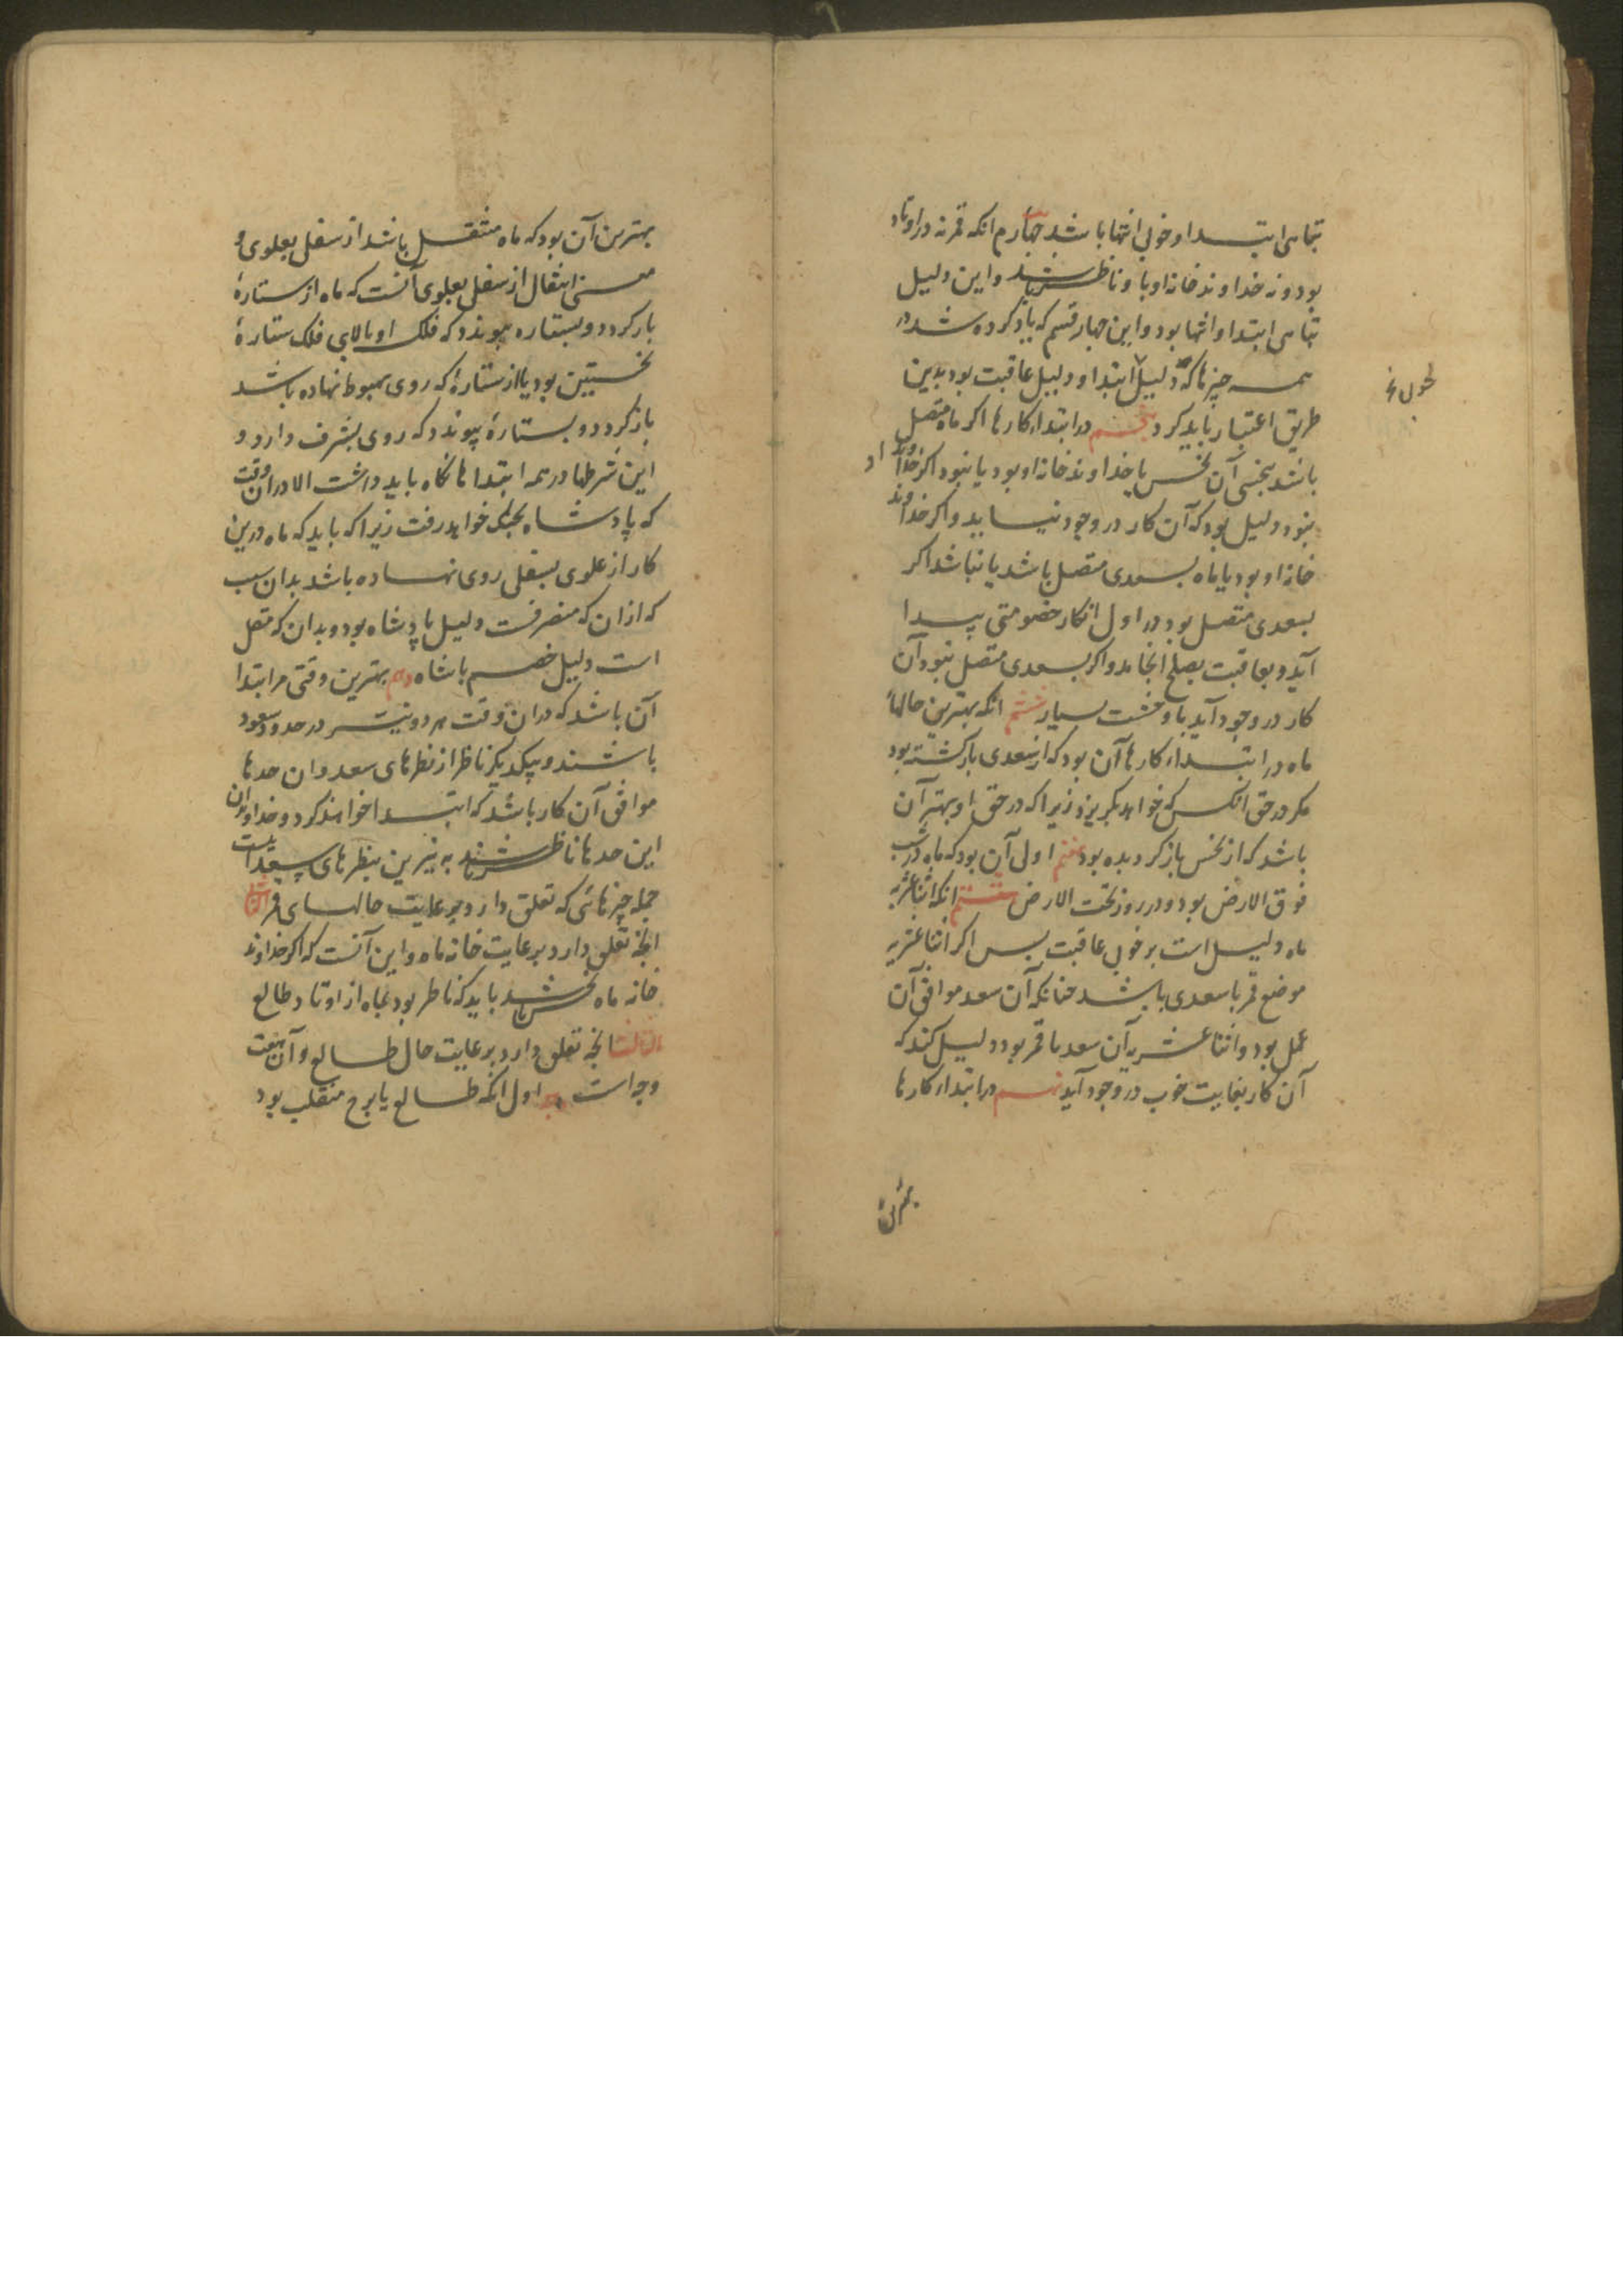 تباهی ابتدا و خوبی انتها باشد چهارم انکه قمر نه در اوتاد
بود و نه خداوند خانه او باو ناظر باشد و این دلیل
تباهی ابتدا و انتها بود و این چهار قسم که یاد کرده شد در
همه چیزها که دلیل ابتدا و دلیل عاقبت بود بدین
طریق اعتبار باید کرد پنجم در ابتداء کارها اکر ماه متصل
باشد بنحسی آن نحس یا خداوند خانه او بود یا نبود اکر خداوند او
نبود دلیل بود که آن کار در وجود نیاید و اکر خداوند
خانه او بود یا ماه بسعدی متصل باشد یا نباشد اکر
بسعدی متصل بود در اول انکار خصومتی پیدا
آید و بعاقبت بصلح انجامد و اکر بسعدی متصل نبود آن
کار در وجود آید با وحشت بسیار ششم انکه بهترین حالهاء
ماه در ابتداء کارها آن بود که از سعدی بازکشته بود
مکر در حق انکس که خواهد بکریزد زیرا که در حق او بهتر آن
باشد که از نحس باز کردیده بود هفتم اولی آن بود که ماه در شب
فوق الارض بود و در روز تحت الارض هشتم انکه اثنا عشریه
ماه دلیل است بر خوبی عاقبت پس اکر اثنا عشریه
موضع قمر با سعدی باشد چنانکه آن سعد موافق آن
عمل بود و اثنا عشریه آن سعد با قمر بود دلیل کند که
آن کار بغایت خوب در وجود آید نهم در ابتداء کارها
بهترین
بهترین آن بود که ماه منتقل باشد از سفل بعلوی و
معنی انتقال از سفل بعلوی آنست که ماه از ستارهٔ
بازکردد و بستاره پیوندد که فلک او بالای فلک ستارهٔ
نخستین بود یا از ستارهٔ که روی بهبوط نهاده باشد
بازکردد و بستارهٔ پیوندد که روی بشرف دارد و
این شرطها در همه ابتداها نکاه باید داشت الا در ان وقت
که پادشاه بجنک خواهد رفت زیرا که باید که ماه درین
کار از علوی بسفلی روی نهاده باشد بدان سبب
که ازان که منصرفست دلیل پادشاه بود و بدان که متصل
است دلیل خصم پادشاه دهم بهترین وقتی مر ابتدا
آن باشد که در ان وقت هر دو نیر در حدود سعود
باشند و بیکدیکر ناظر از نظرهای سعد و ان حدها
موافق آن کار باشد که ابتدا خواهند کرد و خداوندان
این حدها ناظر باشند به نیرین بنظرهای سعد اینست
جمله چیزهائی که تعلق دارد برعایت حالهای قمر الثانی
انجه تعلق دارد برعایت خانه ماه و این آنست که اکر خداوند
خانه ماه نحس باشد باید که ناظر بود بماه از اوتاد طالع
الثالث انجه تعلق دارد برعایت حال طالع و آن هفت
وجه است وجه اول انکه طالع یا برج منقلب بود